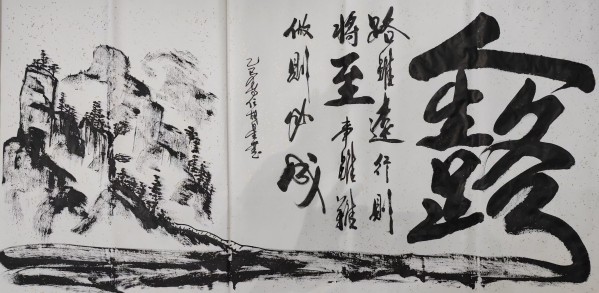 人生路
路雖遠行則
將至事雖難
做則必成
乙巳